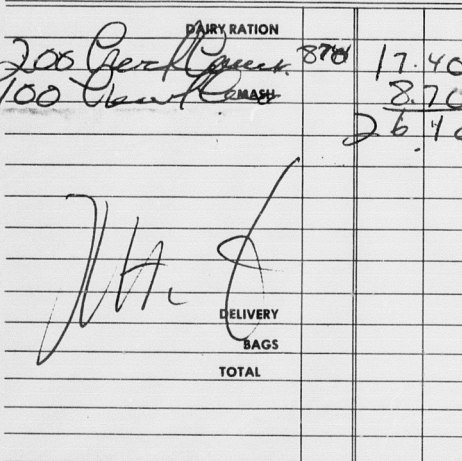 DAIRY RATION
200 Cracked Corn 870 17.40
100 MASH 8.70
26.10
DELIVERY
BAGS
TOTAL